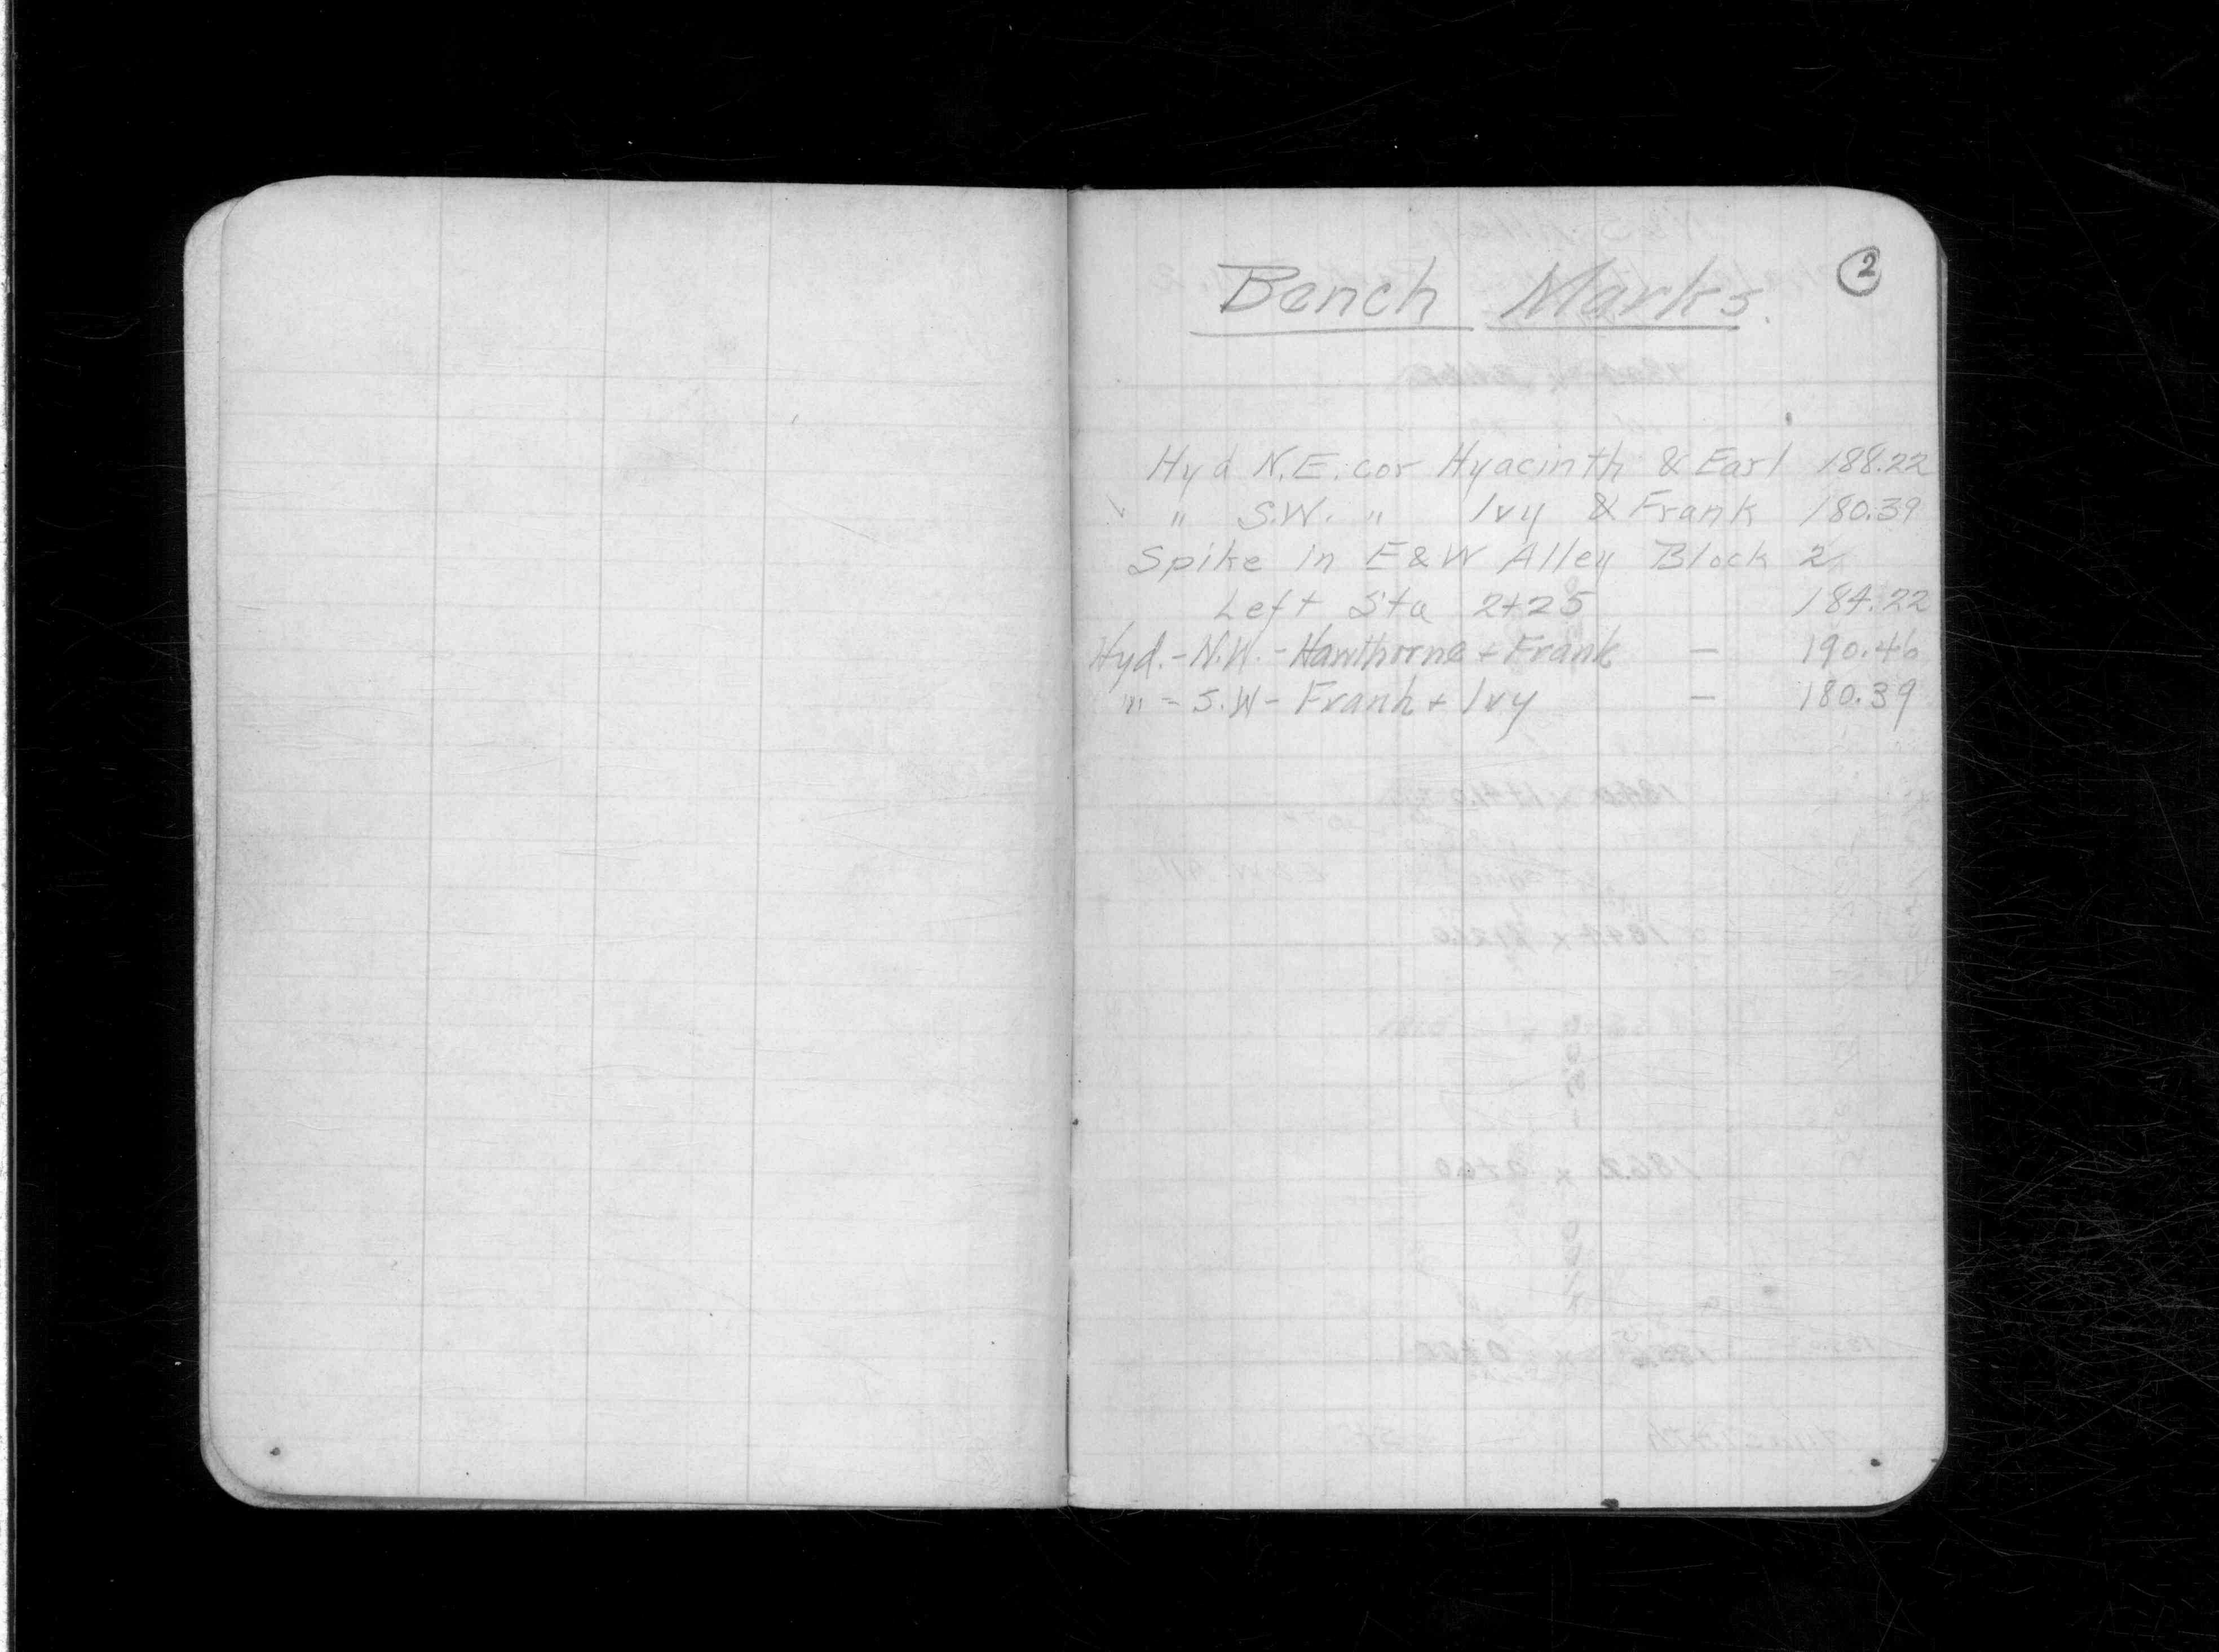 2
Bench Marks.
Hyd N.E. cor Hyacinth & Earl 188.22
✓ " S.W. " Ivy & Frank 180.39
Spike in E&W Alley Block 2
Left Sta 2+25 184.22
Hyd.-N.W.-Hawthorne + Frank - 190.46
" - S.W - Frank + Ivy - 180.39